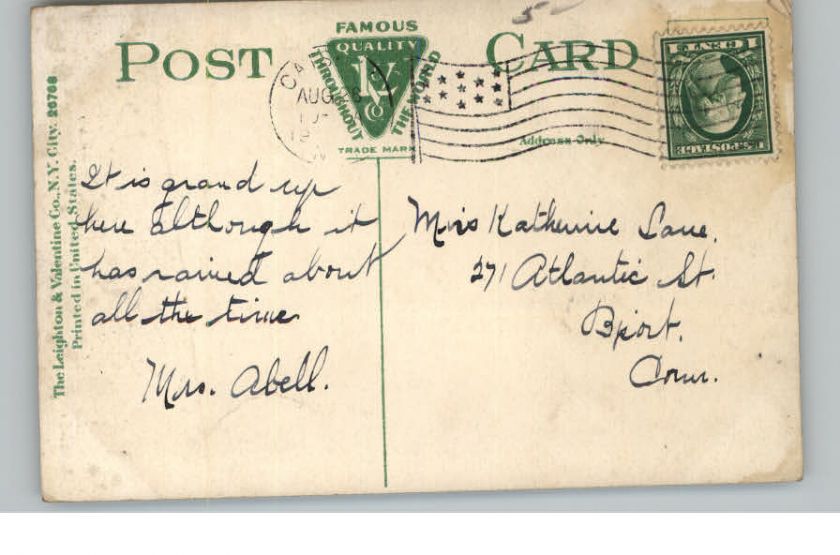 5
FAMOUS
POST CARD
QUALITY
L&V Co
THROUGHOUT THE WORLD
TRADE MARK
AUG 28
Address Only
1 CENT 1
U.S. POSTAGE
The Leighton & Valentine Co., N.Y. City. 26768
Printed in United States.
It is grand up
here although it
has rained about
all the time
Mrs. Abell.
Miss Katherine Lane.
271 Atlantic St.
Bport.
Conn.